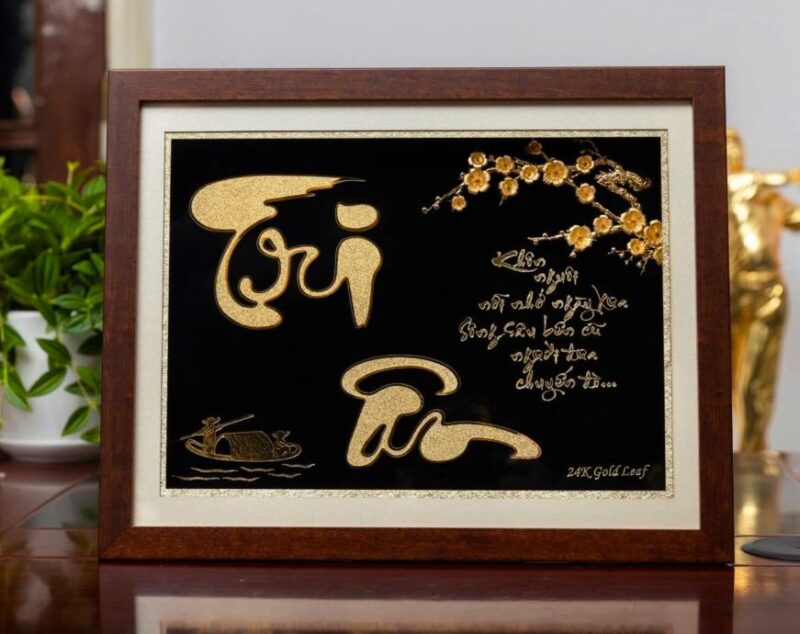 Tri
Ân
Khôn
nguôi
nỗi nhớ ngày xưa
Sông sâu bến cũ
người đưa
chuyến đò...
24K Gold Leaf